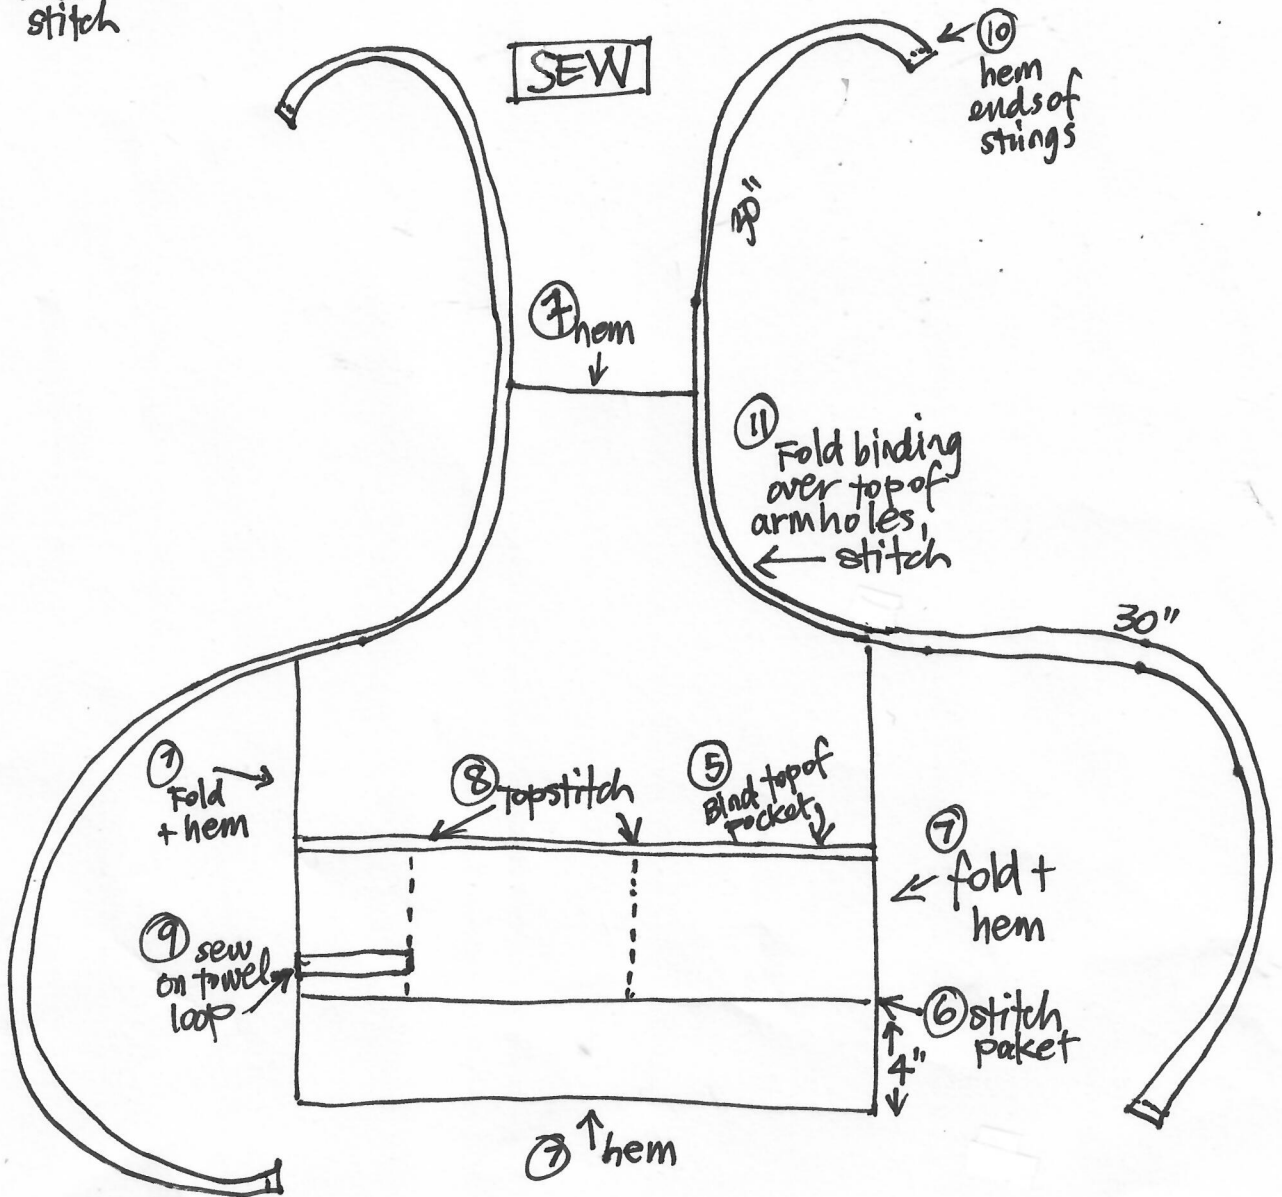 stitch
SEW
⑩
hem
ends of
strings
30"
⑦ hem
⑪
Fold binding
over top of
armholes,
stitch
30"
⑦
Fold
+ hem
⑧ Topstitch
⑤
Bind top of
pocket,
⑦
fold +
hem
⑨ sew
on towel
loop
⑥ stitch
pocket
4"
⑦ hem